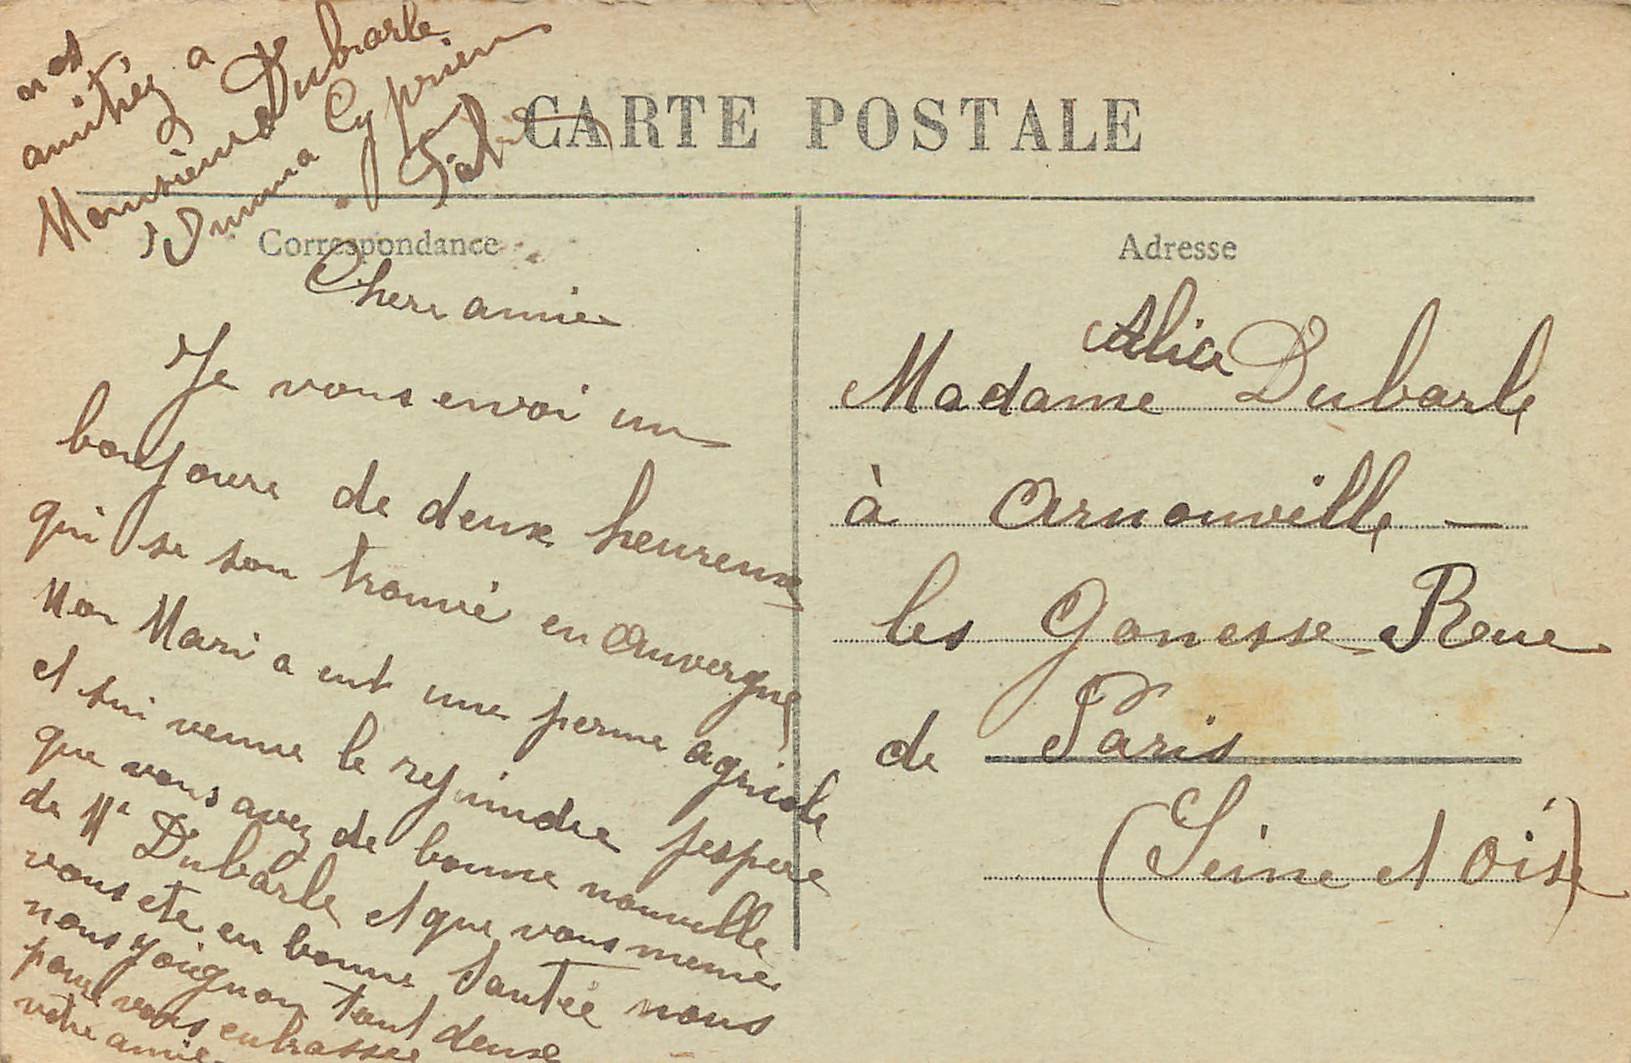 CARTE POSTALE
Correspondance
Chere amie
Je vous envoi un
bonjour de deux heureux
qui se son trouvé en Auvergne
Mon Mari a eut une perme agricole
et sui venue le rejoindre jespere
que vous avez de bonne nouvelle
de Mr Dubarle et que vous meme
vous ete en bonne Santée nous
nous joignon tout deux
pour vous enbrassee
votre amie
nos
amitiéz a
Monsieur Dubarle
Cyprien
Adresse
Madame Alice Dubarle
à Arnouville -
les Gonesse Rue
de Paris
(Seine et Oise)